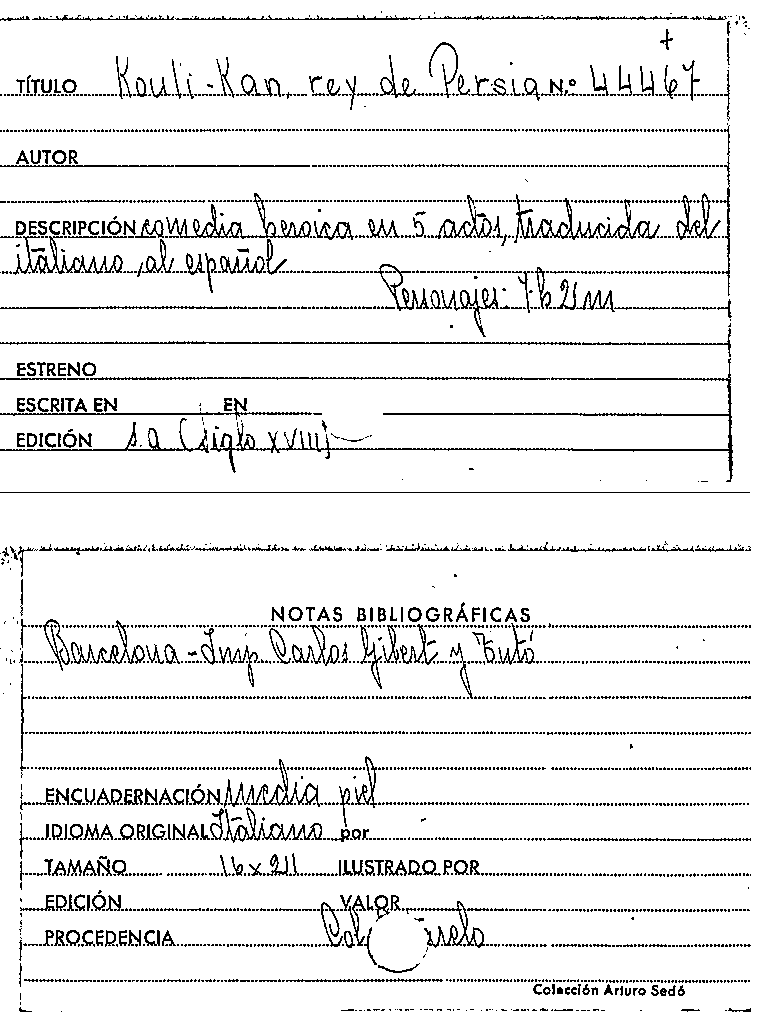 +
TÍTULO Kouli-Kan, rey de Persia N.º 44467
AUTOR
DESCRIPCIÓN comedia heroica en 5 actos, traducida del
italiano, al español
Personajes: 7 h 2 m
ESTRENO
ESCRITA EN EN
EDICIÓN s.a (siglo XVIII)
NOTAS BIBLIOGRÁFICAS
Barcelona - Imp. Carlos Gibert y Tutó
ENCUADERNACIÓN media piel
IDIOMA ORIGINAL Italiano por
TAMAÑO 16 x 211 ILUSTRADO POR
EDICIÓN VALOR
PROCEDENCIA
Colección Arturo Sedó